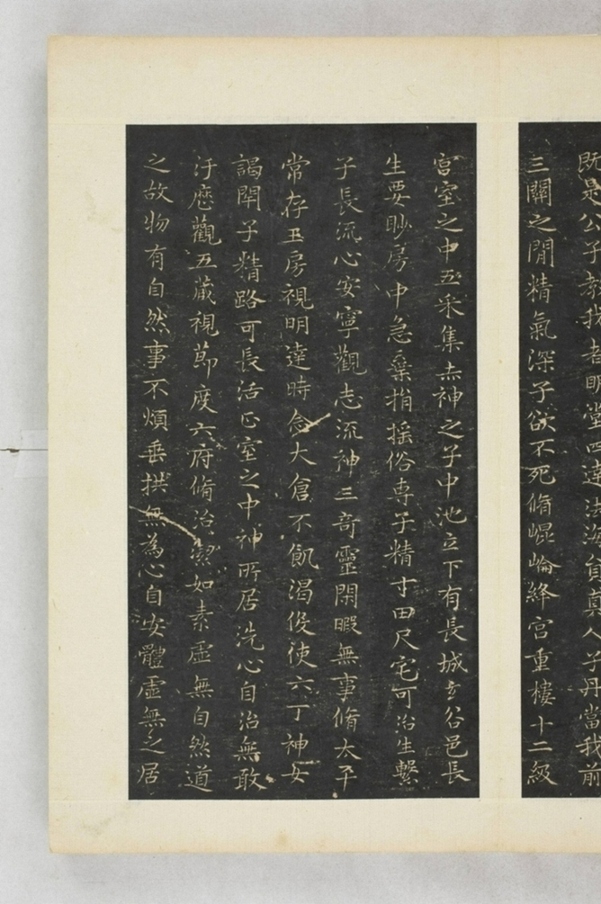 既是公子教我者明堂四達法海員真人子丹當我前
三關之間精氣深子欲不死脩崐崘絳宮重樓十二級
宮室之中五采集赤神之子中池立下有長城玄谷邑長
生要眇房中急棄捐搖俗専子精寸田尺宅可治生繫
子長流心安寧觀志流神三奇靈閑暇無事脩太平
常存玉房視明達時念大倉不飢渴役使六丁神女
謁閉子精路可長活正室之中神所居洗心自治無敢
汙歷觀五藏視節度六府脩治潔如素虛無自然道
之故物有自然事不煩垂拱無為心自安體虛無之居